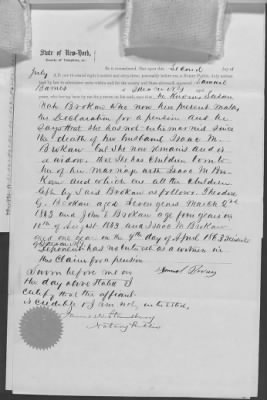 State of New-York,
County of Tompkins, ss:
Be it remembered, That upon this Second day of
July A.D. one th eight hundred and sixty three, personally before a Notary Public, duly authorized
by law to administer oaths within and for the county and State aforesaid Samuel
Barnes
years, who having been by me duly sworn on his oath, says that he knows Susan
Brokaw who now here present makes
the Declaration for a pension and he
says that she has not intermarried since
the death of her husband Isaac M.
Brokaw but she now remains and is
a widow. That she has children born to
her of her marriage with Isaac M Bro
Kaw and which are all the children
left by said Brokaw as follows. Theodore
G. Brokaw aged seven years March 2nd
1863 and John E Brokaw age four years on
10th of August 1863 and Isaac M Brokaw
aged one year on the 9th day of April 1863
Deponent has no interest as a witness in
this Claim for a pension
Sworn before me on
the day above stated &
Certify that the affiant
is credible & I am not interested,
James
Notary Public